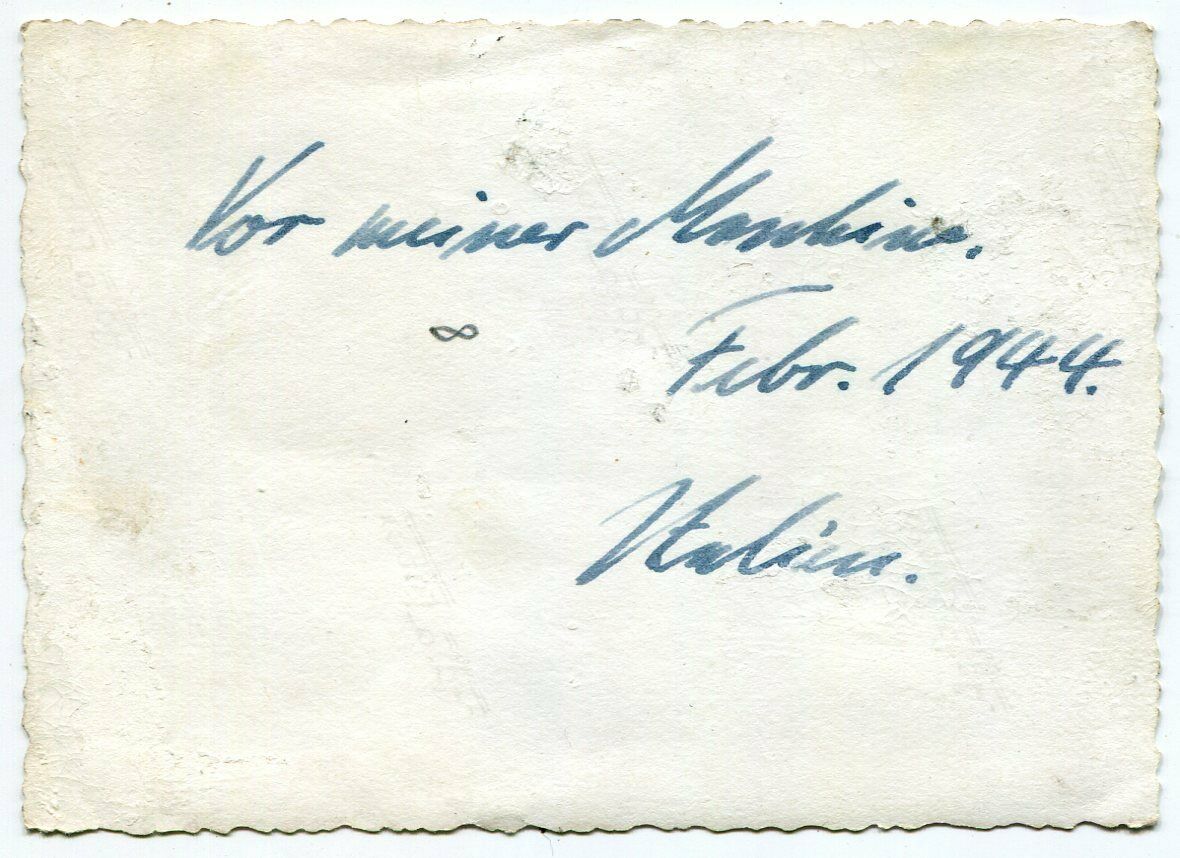 Vor meiner Maschine.
∞
Febr. 1944.
Italien.